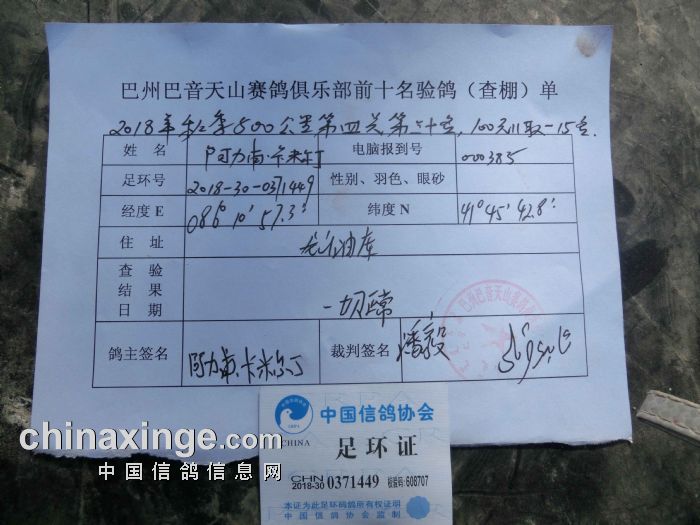 巴州巴音天山赛鸽俱乐部前十名验鸽（查棚）单
2018年秋季500公里第四关第 十名, 100元 取一15名
姓 名 阿力甫·卡米尔丁 电脑报到号 000385
足环号 2018-30-0371449 性别、羽色、眼砂
经度E 086°10′57.3″ 纬度N 41°45′42.8″
住 址 油库
查 验 结 果 日 期 一切正常
鸽主签名 阿力甫·卡米尔丁 裁判签名 潘毅
巴州巴音天山赛鸽
中国信鸽协会
CHINA
足环证
CHN 2018-30 0371449 核验码:608707
本证为此足环码鸽所有权证明
中国信鸽协会监制
chinaxinge.com
中国信鸽信息网